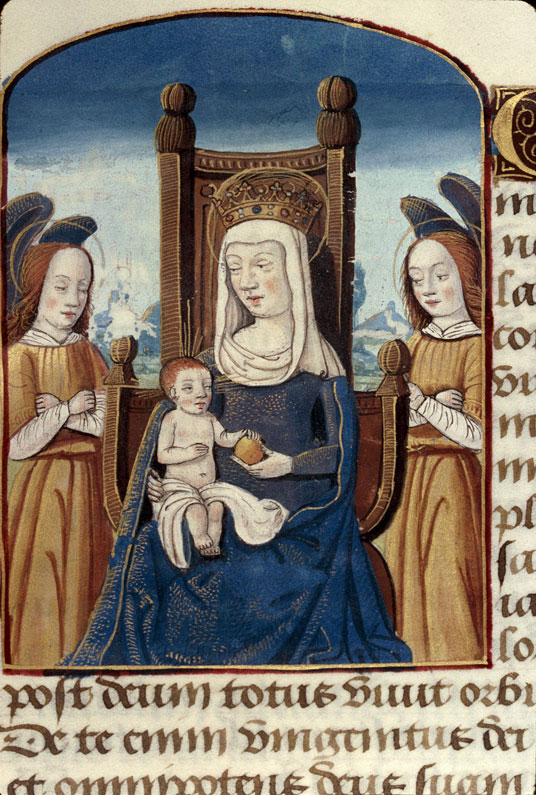 la
pl
sa
ia
lo
post deum totus viuit orbi
De te enim vnigenitus dei
et omnipotens deus suam